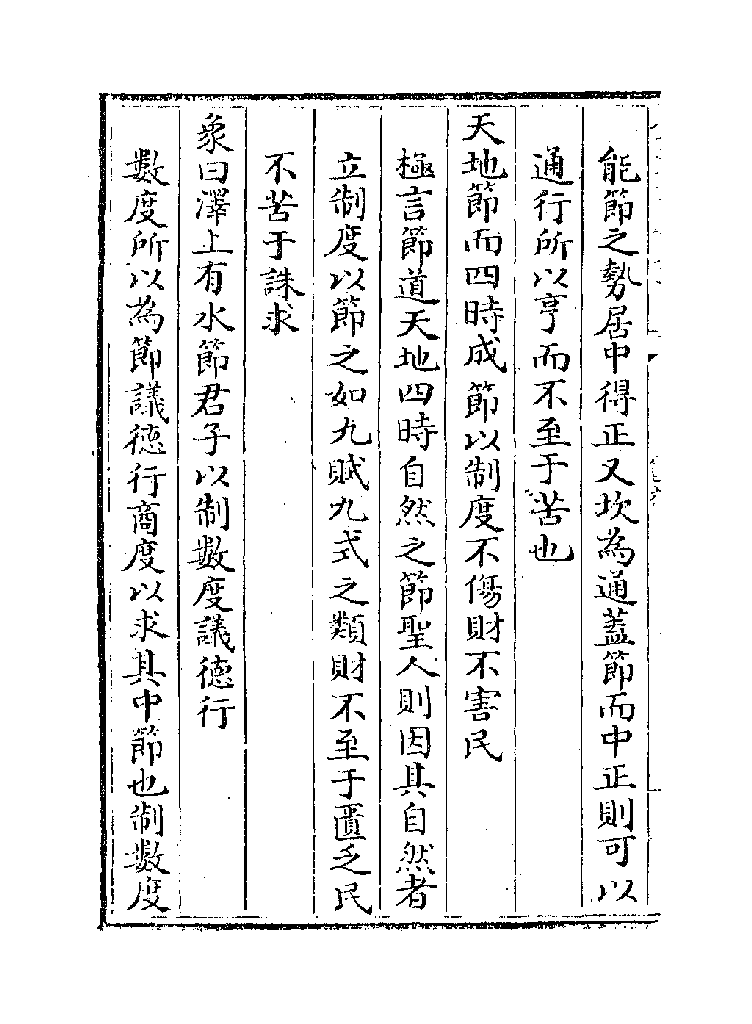 能節之勢居中得正又坎為通蓋節而中正則可以
通行所以亨而不至于苦也
天地節而四時成節以制度不傷財不害民
極言節道天地四時自然之節聖人則因其自然者
立制度以節之如九賦九式之類財不至于匱乏民
不苦于誅求
象曰澤上有水節君子以制數度議德行
數度所以為節議德行商度以求其中節也制數度